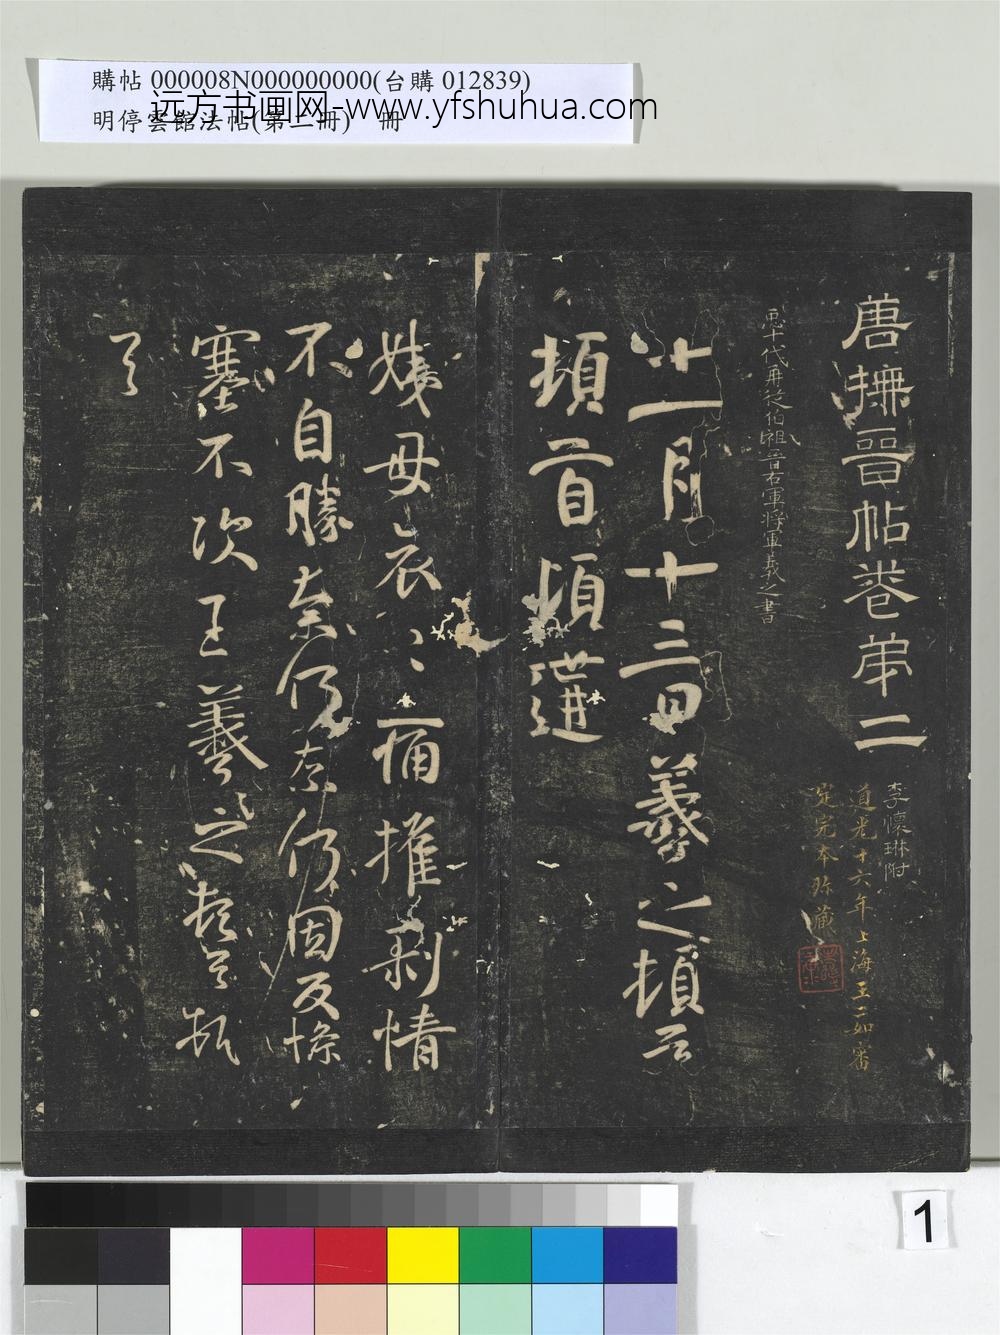 購帖 000008N000000000(台購 012839)
远方书画网-www.yfshuhua.com
明停雲館法帖(第二冊) 冊
唐撫晉帖卷第二
李懷琳附
道光十六年上海王二如審
定完本珍藏
臣十代再從伯祖晉右軍將軍羲之書
十一月十三日羲之頓首
頓首頃遘
姨母哀〻痛摧剥情
不自勝奈何奈何因反慘
塞不次王羲之頓首頓
首
1